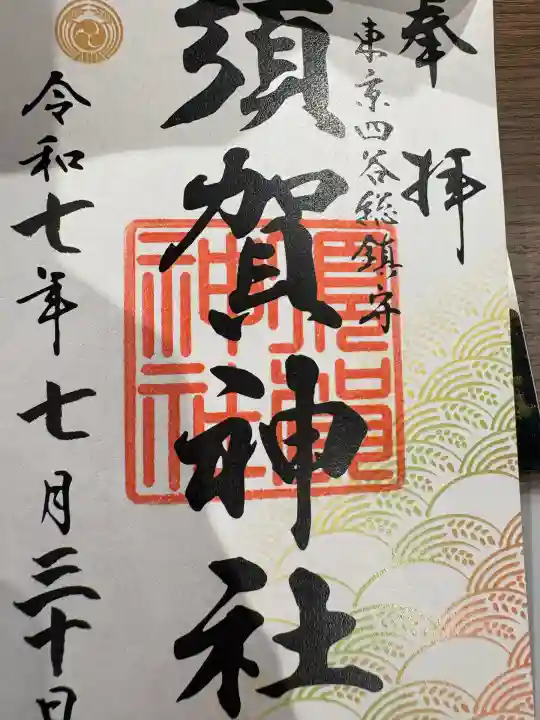 奉拝
東京四谷総鎮守
須賀神社
須賀神社
令和七年七月三十日